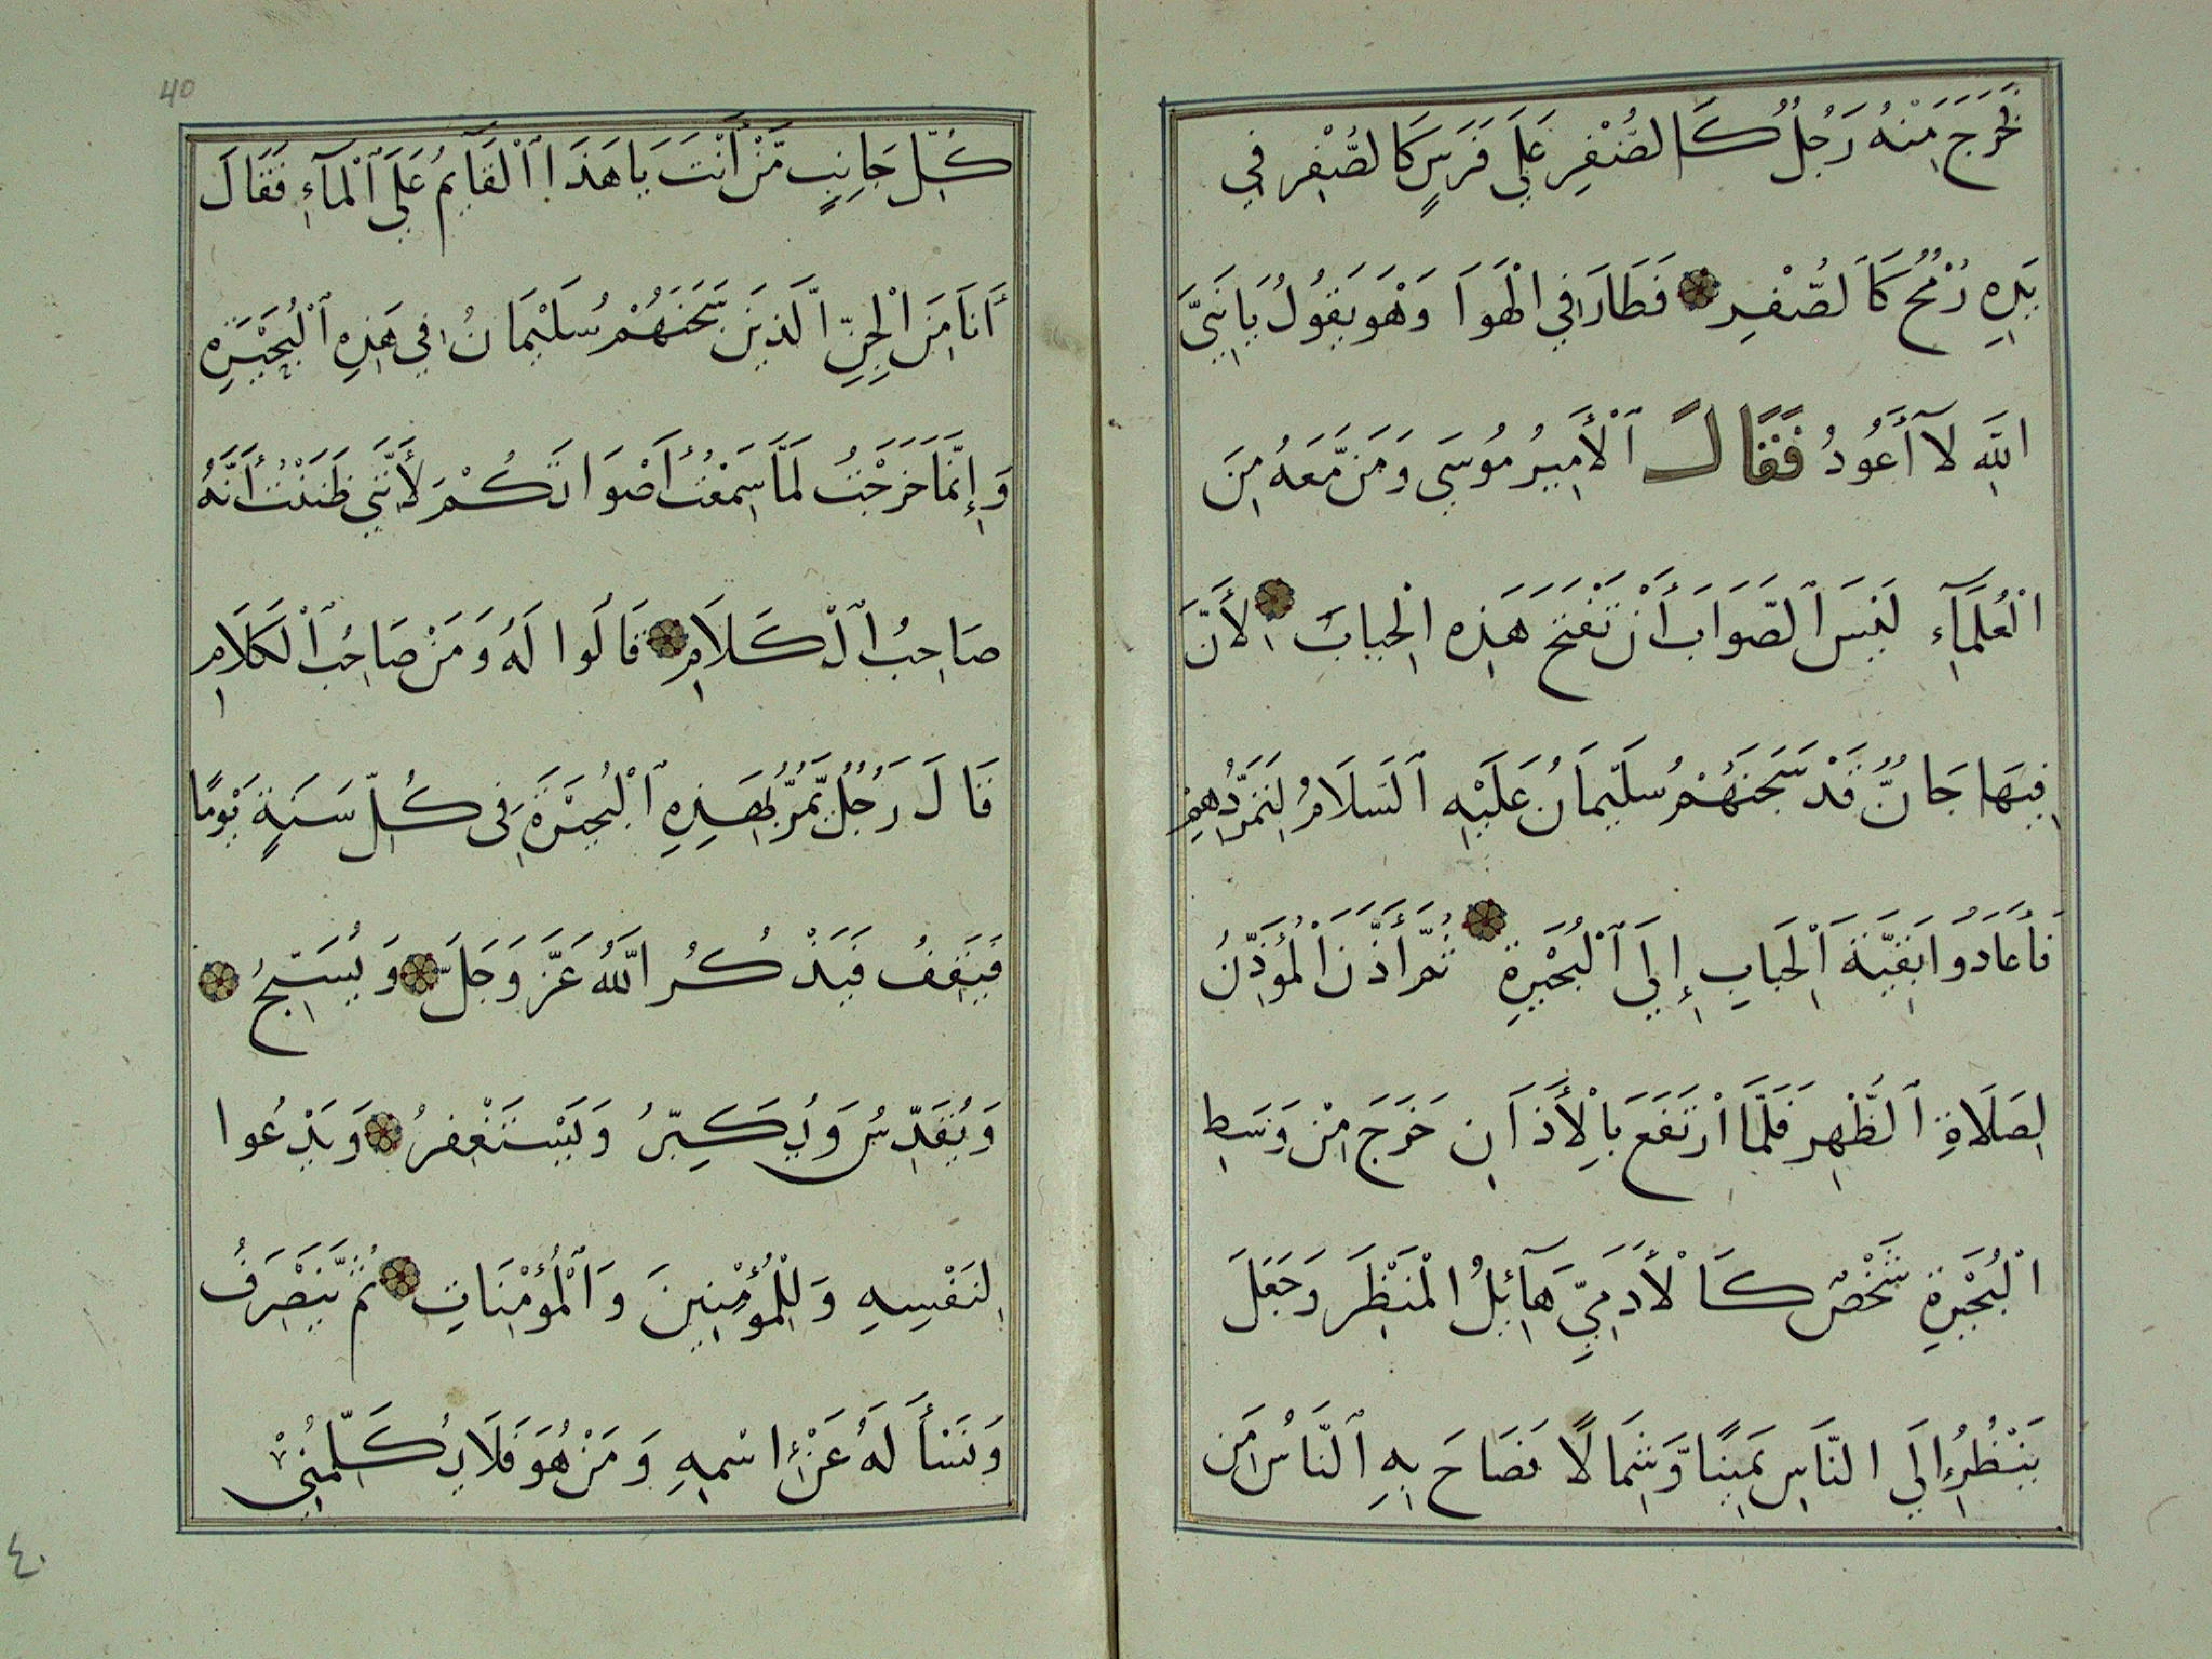 فَخَرَجَ مِنْهُ رَجُلٌ كَالصُّفْرِ عَلَى فَرَسٍ كَالصُّفْرِ فِي
يَدِهِ رُمْحٌ كَالصُّفْرِ فَطَارَ فِي الْهَوَا وَهْوَ يَقُولُ يَا نَبِيَّ
اللَّهِ لَآ أَعُودُ فَقَالَ ٱلْأَمِيرُ مُوسَى وَمَن مَّعَهُ مِنَ
الْعُلَمَآءِ لَيْسَ ٱلصَّوَابَ أَنْ نَفْتَحَ هَذِهِ الْحِبَابَ لِأَنَّ
فِيهَا جَانٌّ قَدْ سَجَنَهُمْ سُلَيْمَانُ عَلَيْهِ ٱلسَلَامُ لِتَمَرُّدِهِمْ
فَأَعَادُوا بَقِيَّةَ الْحِبَابِ إِلَى ٱلْبُحَيْرَةِ ثُمَّ أَذَّنَ الْمُؤَذِّنُ
لِصَلَاةِ ٱلظُّهْرِ فَلَمَّا ارْتَفَعَ بِالْأَذَانِ خَرَجَ مِنْ وَسَطِ
الْبُحَيْرَةِ شَخْصٌ كَالْأَدَمِيِّ هَآئِلُ الْمَنْظَرِ وَجَعَلَ
يَنْظُرُ إِلَى النَّاسِ يَمِينًا وَّشِمَالًا فَصَاحَ بِهِ ٱلنَّاسُ مِن
كُلِّ جَانِبٍ مَّنْ أَنْتَ يَا هَذَا ٱلْقَآيِمُ عَلَى ٱلْمَآءِ فَقَالَ
أَنَا مِنَ الْجِنِّ الَّذِينَ سَجَنَهُمْ سُلَيْمَانُ فِي هَذِهِ ٱلْبُحَيْرَةِ
وَإِنَّمَا خَرَجْتُ لَمَّا سَمِعْتُ أَصْوَاتَكُمْ لِأَنَّنِي ظَنَنْتُ أَنَّهُ
صَاحِبُ ٱلْكَلَامِ قَالُوا لَهُ وَمَنْ صَاحِبُ ٱلْكَلَامِ
قَالَ رَجُلٌ يَّمُرُّ بِهَذِهِ ٱلْبُحَيْرَةِ فِى كُلِّ سَنَةٍ يَوْمًا
فَيَقِفُ فَيَذْكُرُ اللَّهَ عَزَّ وَجَلَّ وَيُسَبِّحُ
وَيُقَدِّسُ وَيُكَبِّرُ وَيَسْتَغْفِرُ وَيَدْعُوا
لِنَفْسِهِ وَلِلْمُؤْمِنِينَ وَٱلْمُؤْمِنَاتِ ثُمَّ يَنْصَرِفُ
وَنَسْأَلَهُ عَنْ إِسْمِهِ وَمَنْ هُوَ فَلَا يُكَلِّمُنِي
40
٤٠